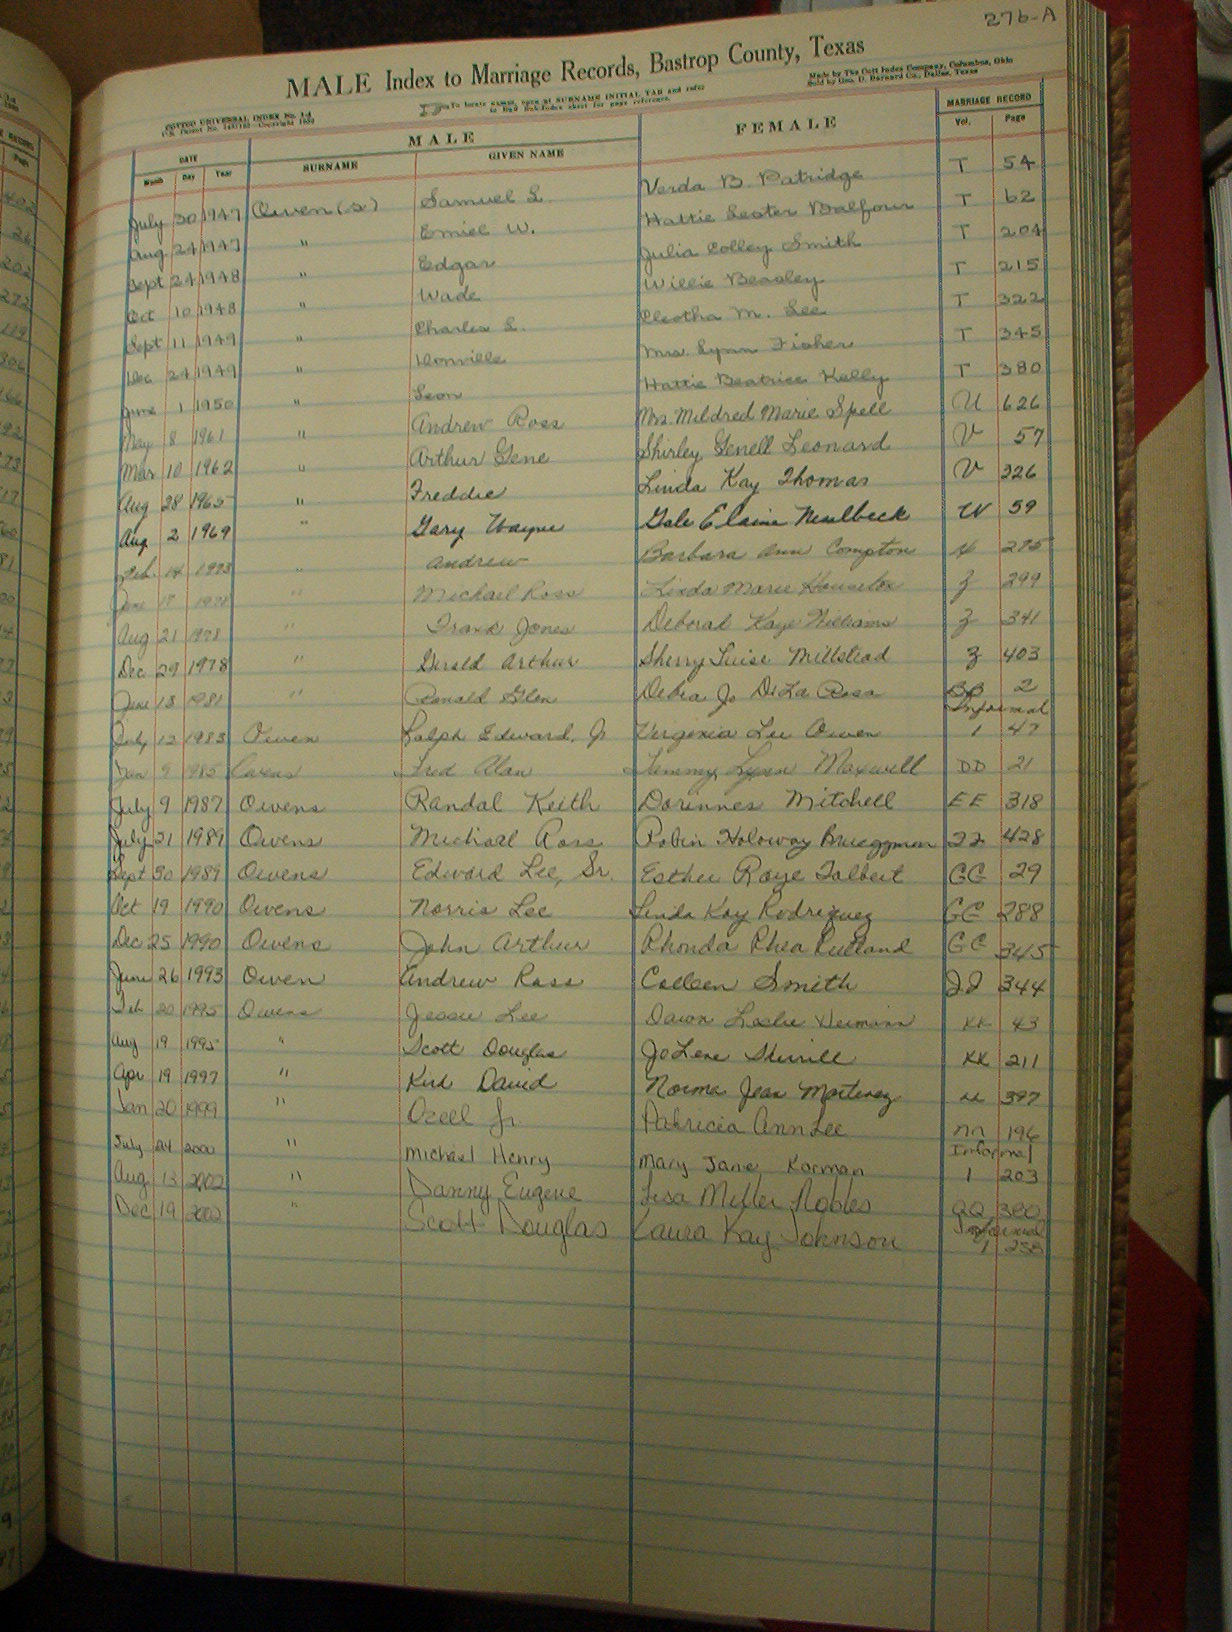 276-A
MALE Index to Marriage Records, Bastrop County, Texas
COTTCO UNIVERSAL INDEX No. 1-A
To locate names, open at SURNAME INITIAL TAB and refer
to Sub-Index sheet for page reference.
Made by The Cott Index Company, Columbus, Ohio
Sold by Geo. D. Barnard Co., Dallas, Texas
DATE MALE FEMALE MARRIAGE RECORD
Month Day Year SURNAME GIVEN NAME Vol. Page
July 30 1947 Owen(s) Samuel L. Verda B. Patridge T 54
Aug 24 1947 " Emiel W. Hattie Lester Balfour T 62
Sept 24 1948 " Edgar Julia Colley Smith T 204
Oct 10 1948 " Wade Willie Beasley T 215
Sept 11 1949 " Charles L. Cleotha M. Lee T 322
Dec 24 1949 " Donville Mrs. Lynn Fisher T 345
June 1 1950 " Leon Hattie Beatrice Kelly T 380
May 8 1961 " Andrew Ross Mrs. Mildred Marie Spell U 626
Mar 10 1962 " Arthur Gene Shirley Genell Leonard V 57
Aug 28 1965 " Freddie Linda Kay Thomas V 326
Aug 2 1969 " Gary Wayne Gale Elaine W 59
Feb 14 1973 " Andrew Barbara Ann Compton 275
June 17 1978 " Michael Ross Linda Marie Z 299
Aug 21 1978 " Frank Jones Deborah Kaye Williams Z 341
Dec 29 1978 " Gerald Arthur Sherry Luise Millstead Z 403
June 13 1981 " Ronald Glen Debra Jo De La Rosa BB 2
Informal
July 12 1983 Owen Ralph Edward, Jr Virginia Lee Owen 1 47
Jan 9 1985 Owens Fred Alan Tammy Lynn Maxwell DD 21
July 9 1987 Owens Randal Keith Dorinnes Mitchell EE 318
July 21 1989 Owens Michael Ross Robin Holoway Brueggman FF 428
Sept 30 1989 Owens Edward Lee, Sr. Esther Raye Talbert GG 29
Oct 19 1990 Owens Norris Lee Linda Kay Rodriquez GG 288
Dec 25 1990 Owens John Arthur Rhonda Rhea Rutland GG 345
June 26 1993 Owen Andrew Ross Colleen Smith JJ 344
Feb 20 1995 Owens Jessie Lee Dawn Leslie KK 43
Aug 19 1995 " Scott Douglas JoLene Sherrill KK 211
Apr 19 1997 " Kirk David Norma Jean LL 397
Jan 20 1999 " Ozell Jr. Patricia Ann Lee NN 196
Informal
July 24 2000 " Michael Henry Mary Jane Korman 1 203
Aug 13 2002 " Danny Eugene Lisa Miller Nobles QQ 380
Informal
Dec 19 2002 " Scott Douglas Laura Kay Johnson 1 258